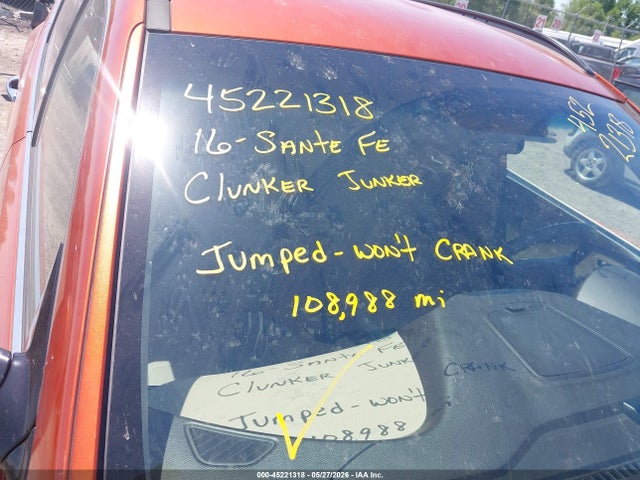 45221318
16-SANTE FE
CLUNKER JUNKER
Jumped - WON'T CRANK
108,988 mi
452
21318
16-SANTE FE
CLUNKER JUNKER
Jumped - WON'T CRANK
108988 mi
000-45221318 - 05/27/2026 - IAA Inc.